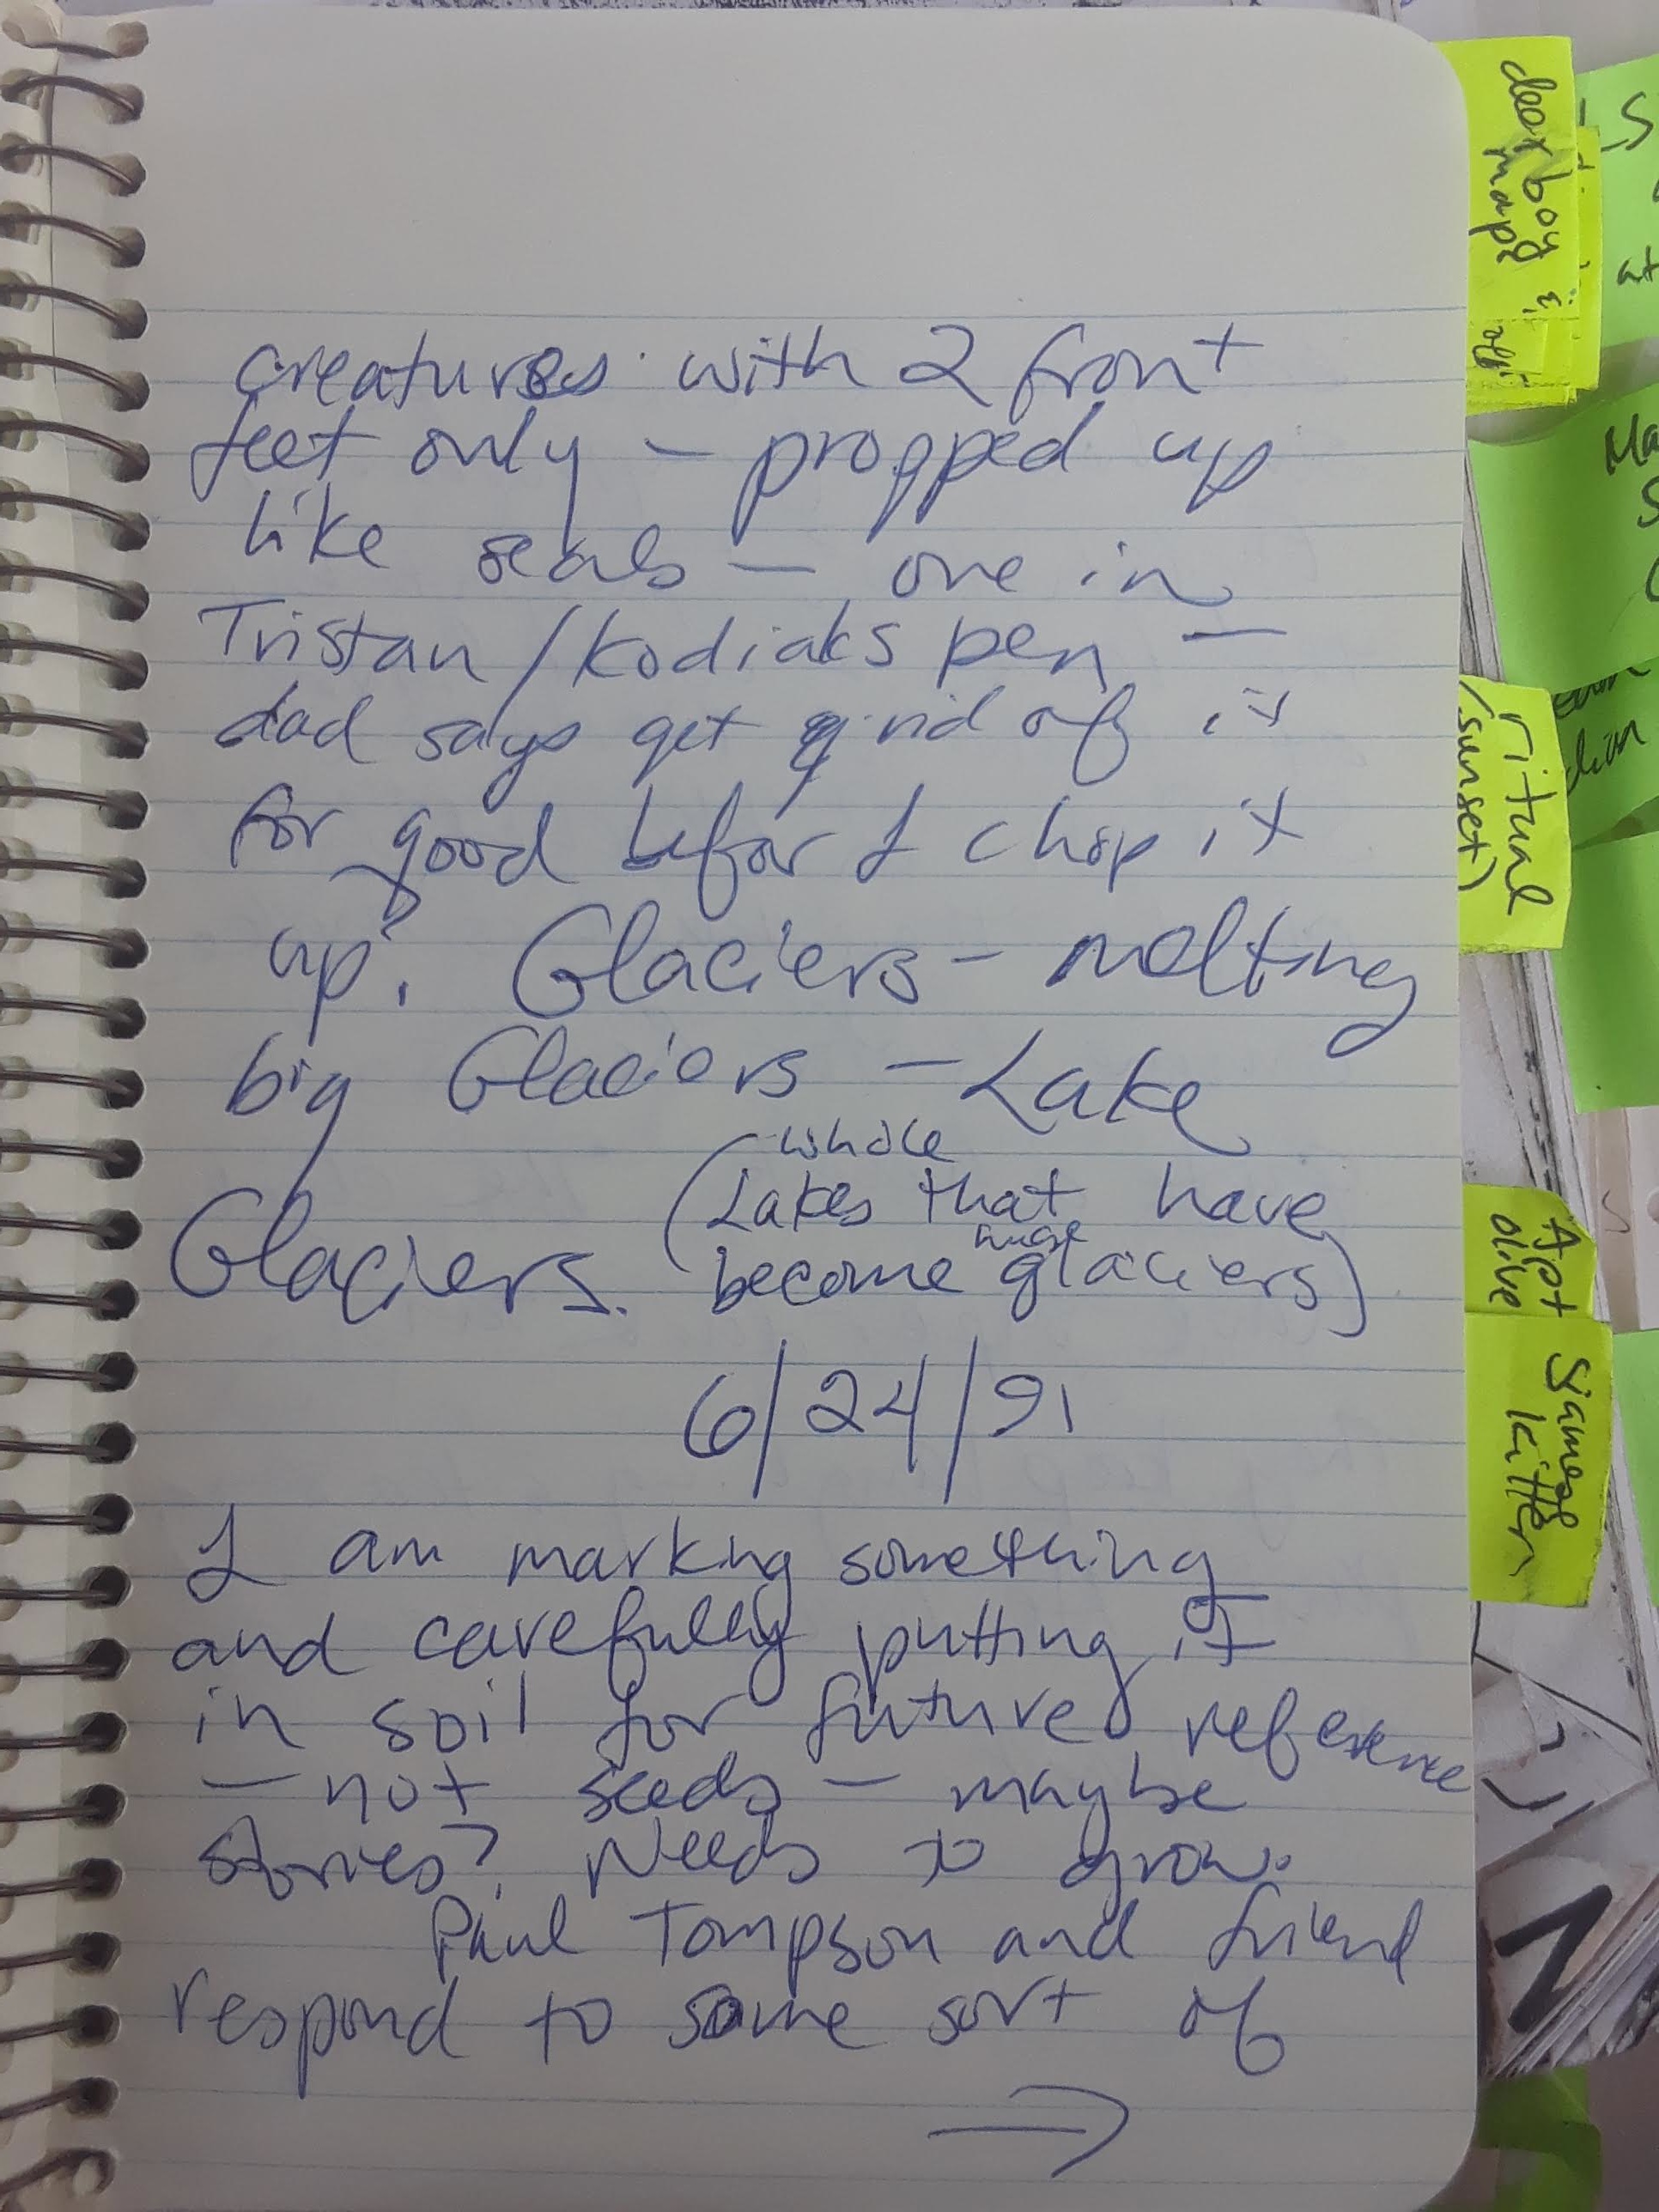 creatures with 2 front
feet only – propped up
like seals – one in
Tristan/Kodiaks pen –
dad says get rid of it
for good befor I chop it
up. Glaciers – melting
big Glaciers – Lake
Glaciers. (whole
Lakes that have
become huge glaciers)
6/24/91
I am markng something
and carefully putting it
in soil for future reference
– not seeds – maybe
stories? Needs to grow.
Paul Tompson and friend
respond to some sort of
→
deer boy
maps
ritual
(sunset)
Apt
olive
Siamese
kitten
Ma
at
S